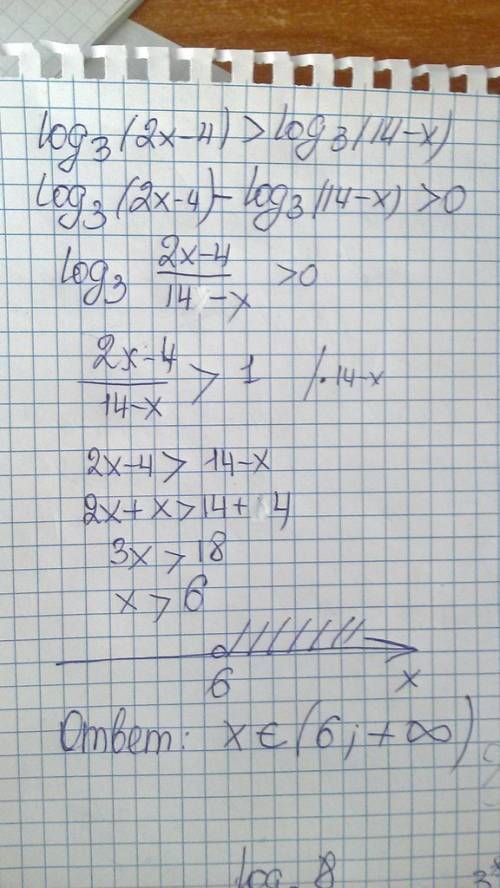 log₃(2x-4)>log₃(14-x)
log₃(2x-4)-log₃(14-x)>0
log₃ (2x-4)/(14-x) >0
(2x-4)/(14-x) > 1 /·14-x
2x-4 > 14-x
2x+x>14+4
3x > 18
x > 6
6 x
Ответ: x∈(6;+∞)
log 8